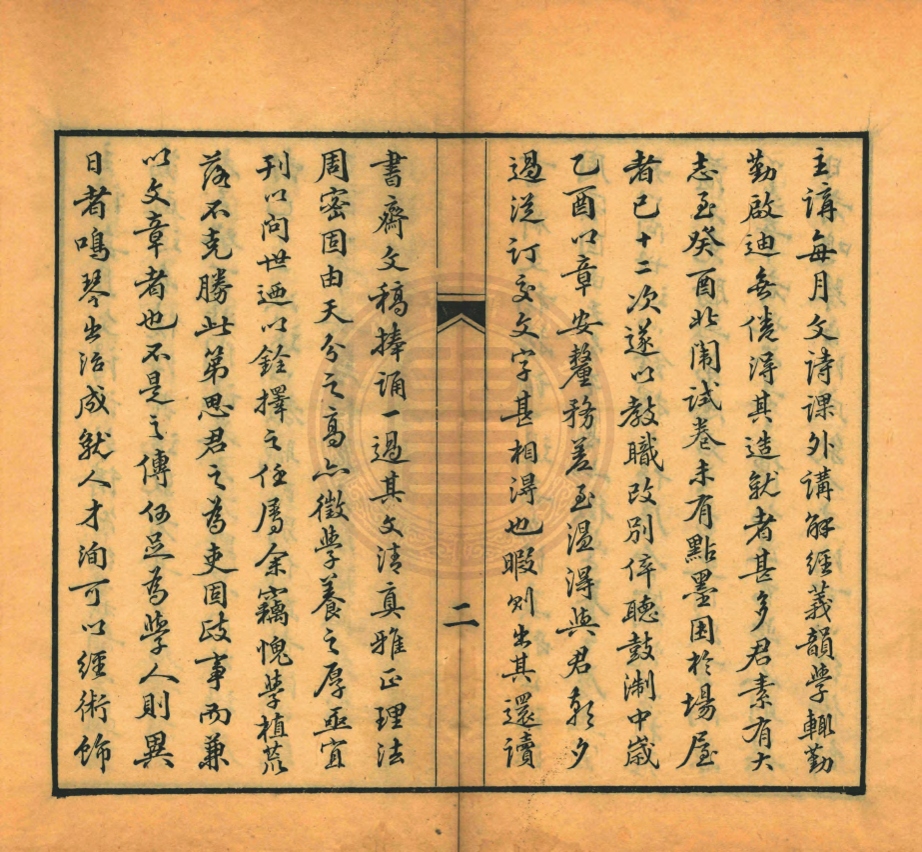 主講每月文詩課外講解經義韻學輒勤
勤啟迪無倦得其造就者甚多君素有大
志至癸酉北闈試卷未有點墨困於場屋
者已十二次遂以教職改別倅聽鼓淛中歲
乙酉以章安釐務差至溫得與君朝夕
過從訂交文字甚相得也暇則出其還讀
二
書齋文稿捧誦一過其文清真雅正理法
周密固由天分之高亦徵學養之厚亟宜
刊以問世迺以銓擇之任屬余竊愧學植荒
落不克勝此第思君之為吏固政事而兼
以文章者也不是之傳何足為學人則異
日者鳴琴出治成就人才洵可以經術飾